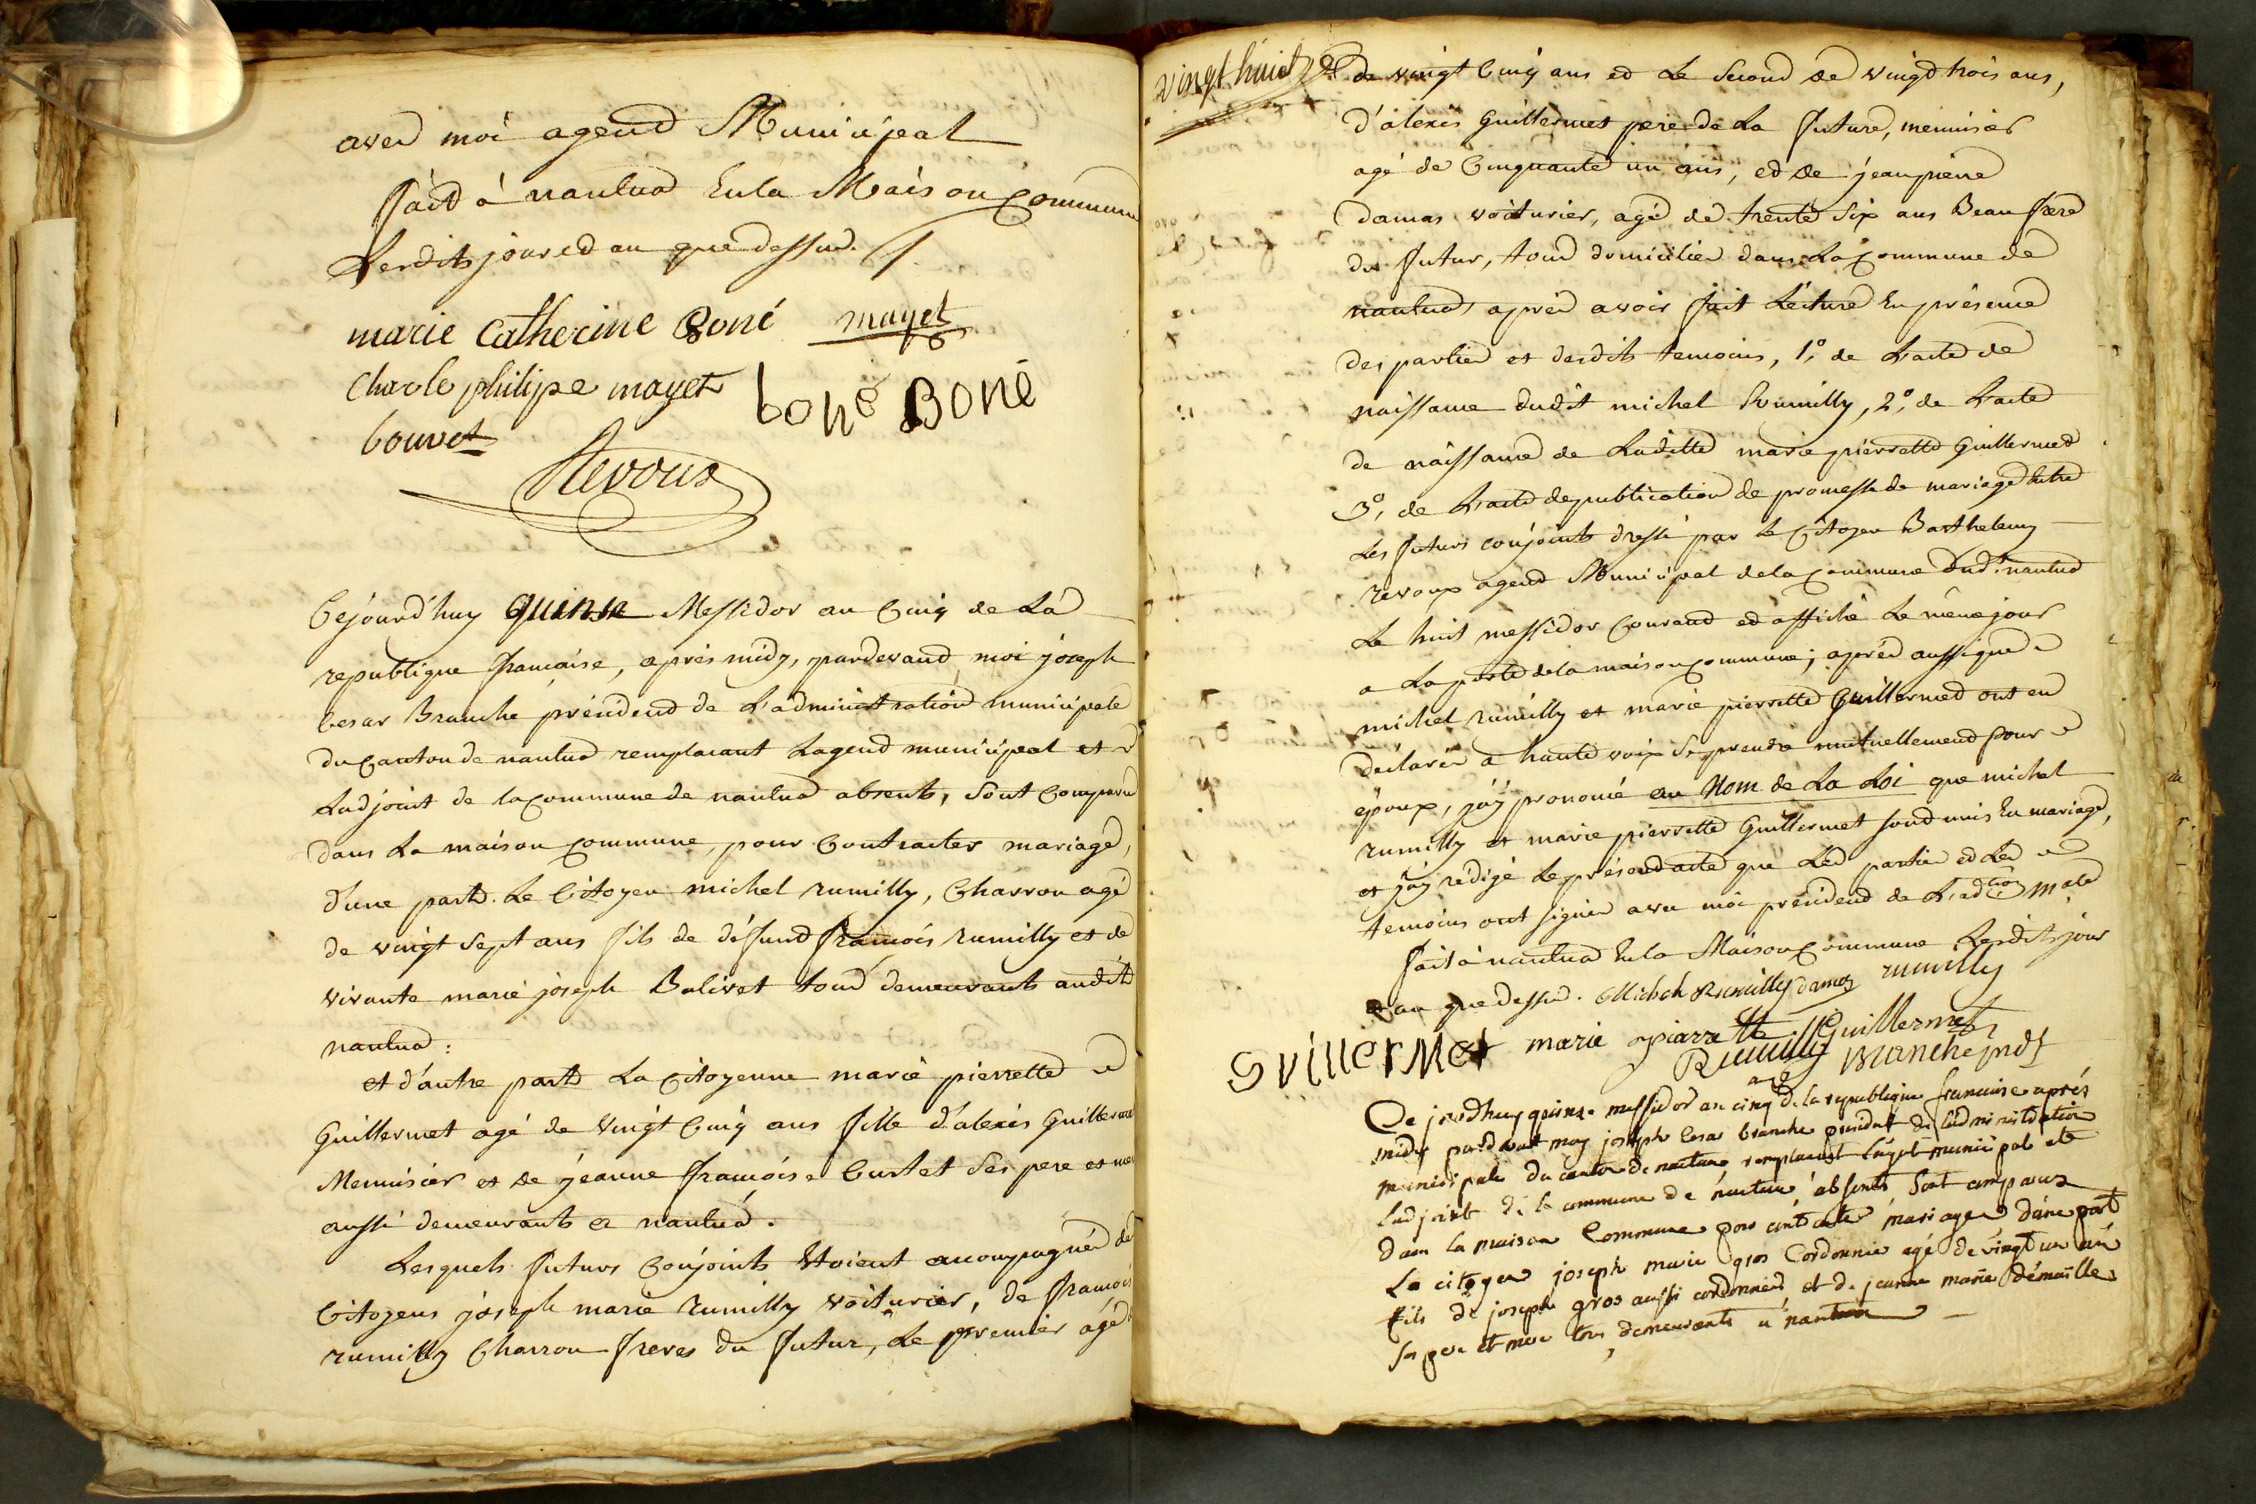 avec moi agent Municipal
fait à nantua En la Maison Commune
Lesdits jour et an que dessus.
marie Catherine Boné mayet
Charle philipe mayet boné BONé
bouvet
Revoux
Cejourd'huy quinze Messidor an Cinq de La
republique française, après midy, pardevant moi joseph
Cesar Branche président de L'administration municipale
du Canton de nantua remplacant Lagent municipal et
Ladjoint de la Commune de nantua absents, sont Comparu
dans La maison Commune, pour Contracter mariage,
d'une part. Le Citoyen michel rumilly, Charron agé
de vingt sept ans fils de défunt françois rumilly et de
vivante marie joseph Balivet tous demeurants audit
nantua :
et d'autre part La Citoyenne marie pierrette
Guillermet agé de vingt Cinq ans fille d'alexis Guillermet
Menuisier et de jeanne françoise Curtet Ses pere et mer
aussi demeurants a nantua.
Lesquels futurs Conjoints Etoient accompagnés de
Citoyens joseph marie rumilly voiturier, de françois
rumilly Charron freres du futur, Le premier agé
vingt huit
de vingt Cinq ans et Le Second de vingt trois ans,
d'alexis Guillermet pere de La future, menuisier
agé de Cinquante un ans, et de jean pierre
damas voiturier, agé de trente Six ans Beau frere
du futur, tous domiciliés dans La Commune de
nantua après avoir fait Lecture En présence
des parties et desdits temoins, 1º, de L'acte de
naissance dudit michel Rumilly, 2º, de L'acte
de naissance de Laditte marie pierrette Guillermet
3º, de L'acte de publication de promesse de mariage Entre
Les futurs conjoints dressé par le Citoyen Barthelemy
revoux agent Municipal de la Commune dud. nantua
Le huit messidor Courant et affiché Le même jour
a La porte de la maison Commune; après aussi que
michel rumilly et marie pierrette Guillermet ont eu
déclarés a haute voix Se prendre mutuellement pour
époux, j'ay prononcé au Nom de La Loi que michel
rumilly et marie pierrette Guillermet sont unis En mariage,
et j'ay rédigé Le présent acte que Les parties et Les
temoins ont signés avec moi président de L'adtion male
fait à nantua En la Maison Commune Lesdits jour
et an que dessus. Michel Rumilly damas rumilly
Guillermet marie piarrette Guillermet
Rumilly Branche prdt
Ce jourdhuy quinze messidor an cinq de la republique francaise après
midy pardevant moy joseph Cesar branche president de Ladministration
municipale du canton de nantua, remplacant Lagent municipal et
Ladjoint de la commune de nantua, absents, Sont comparus
dans la maison Commune pour contracter mariage d'une part
Le citoyen joseph marie gros Cordonnier agé de vingt un an
fils de joseph gros aussi cordonnier et de jeanne marie démaillé
Ses pere et mere tous demeurants a nantua